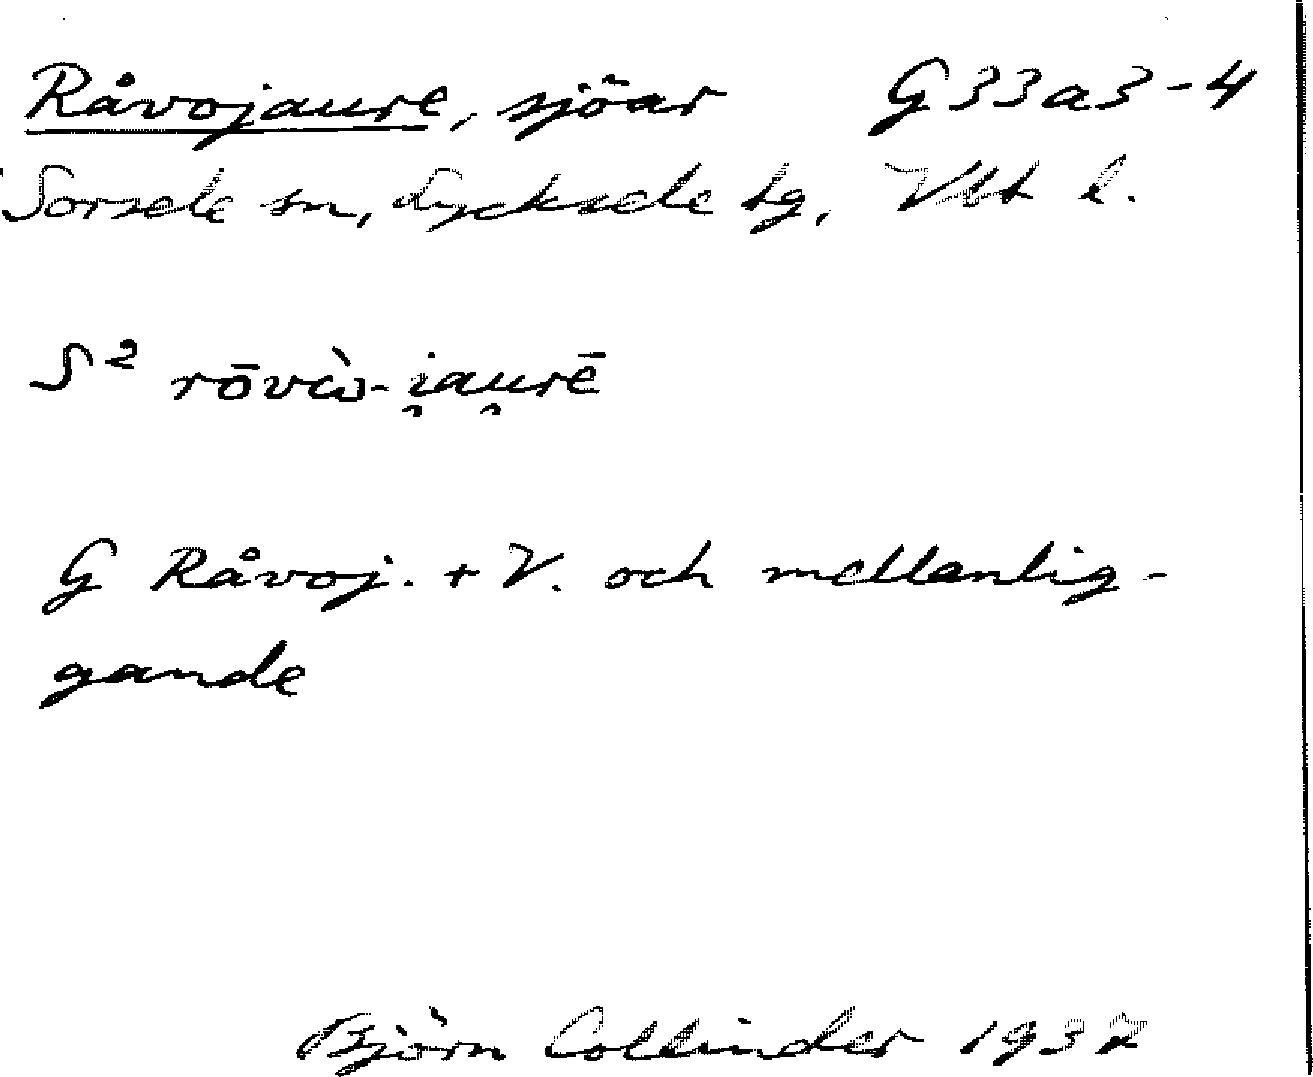 Råvojaure, sjöar G33a3-4
Sorsele sn, Lycksele tg, Vbt l.
S² rōvὼ-i̯au̯rē
G Råvoj. + V. och mellanlig-
gande
Björn Collinder 1937